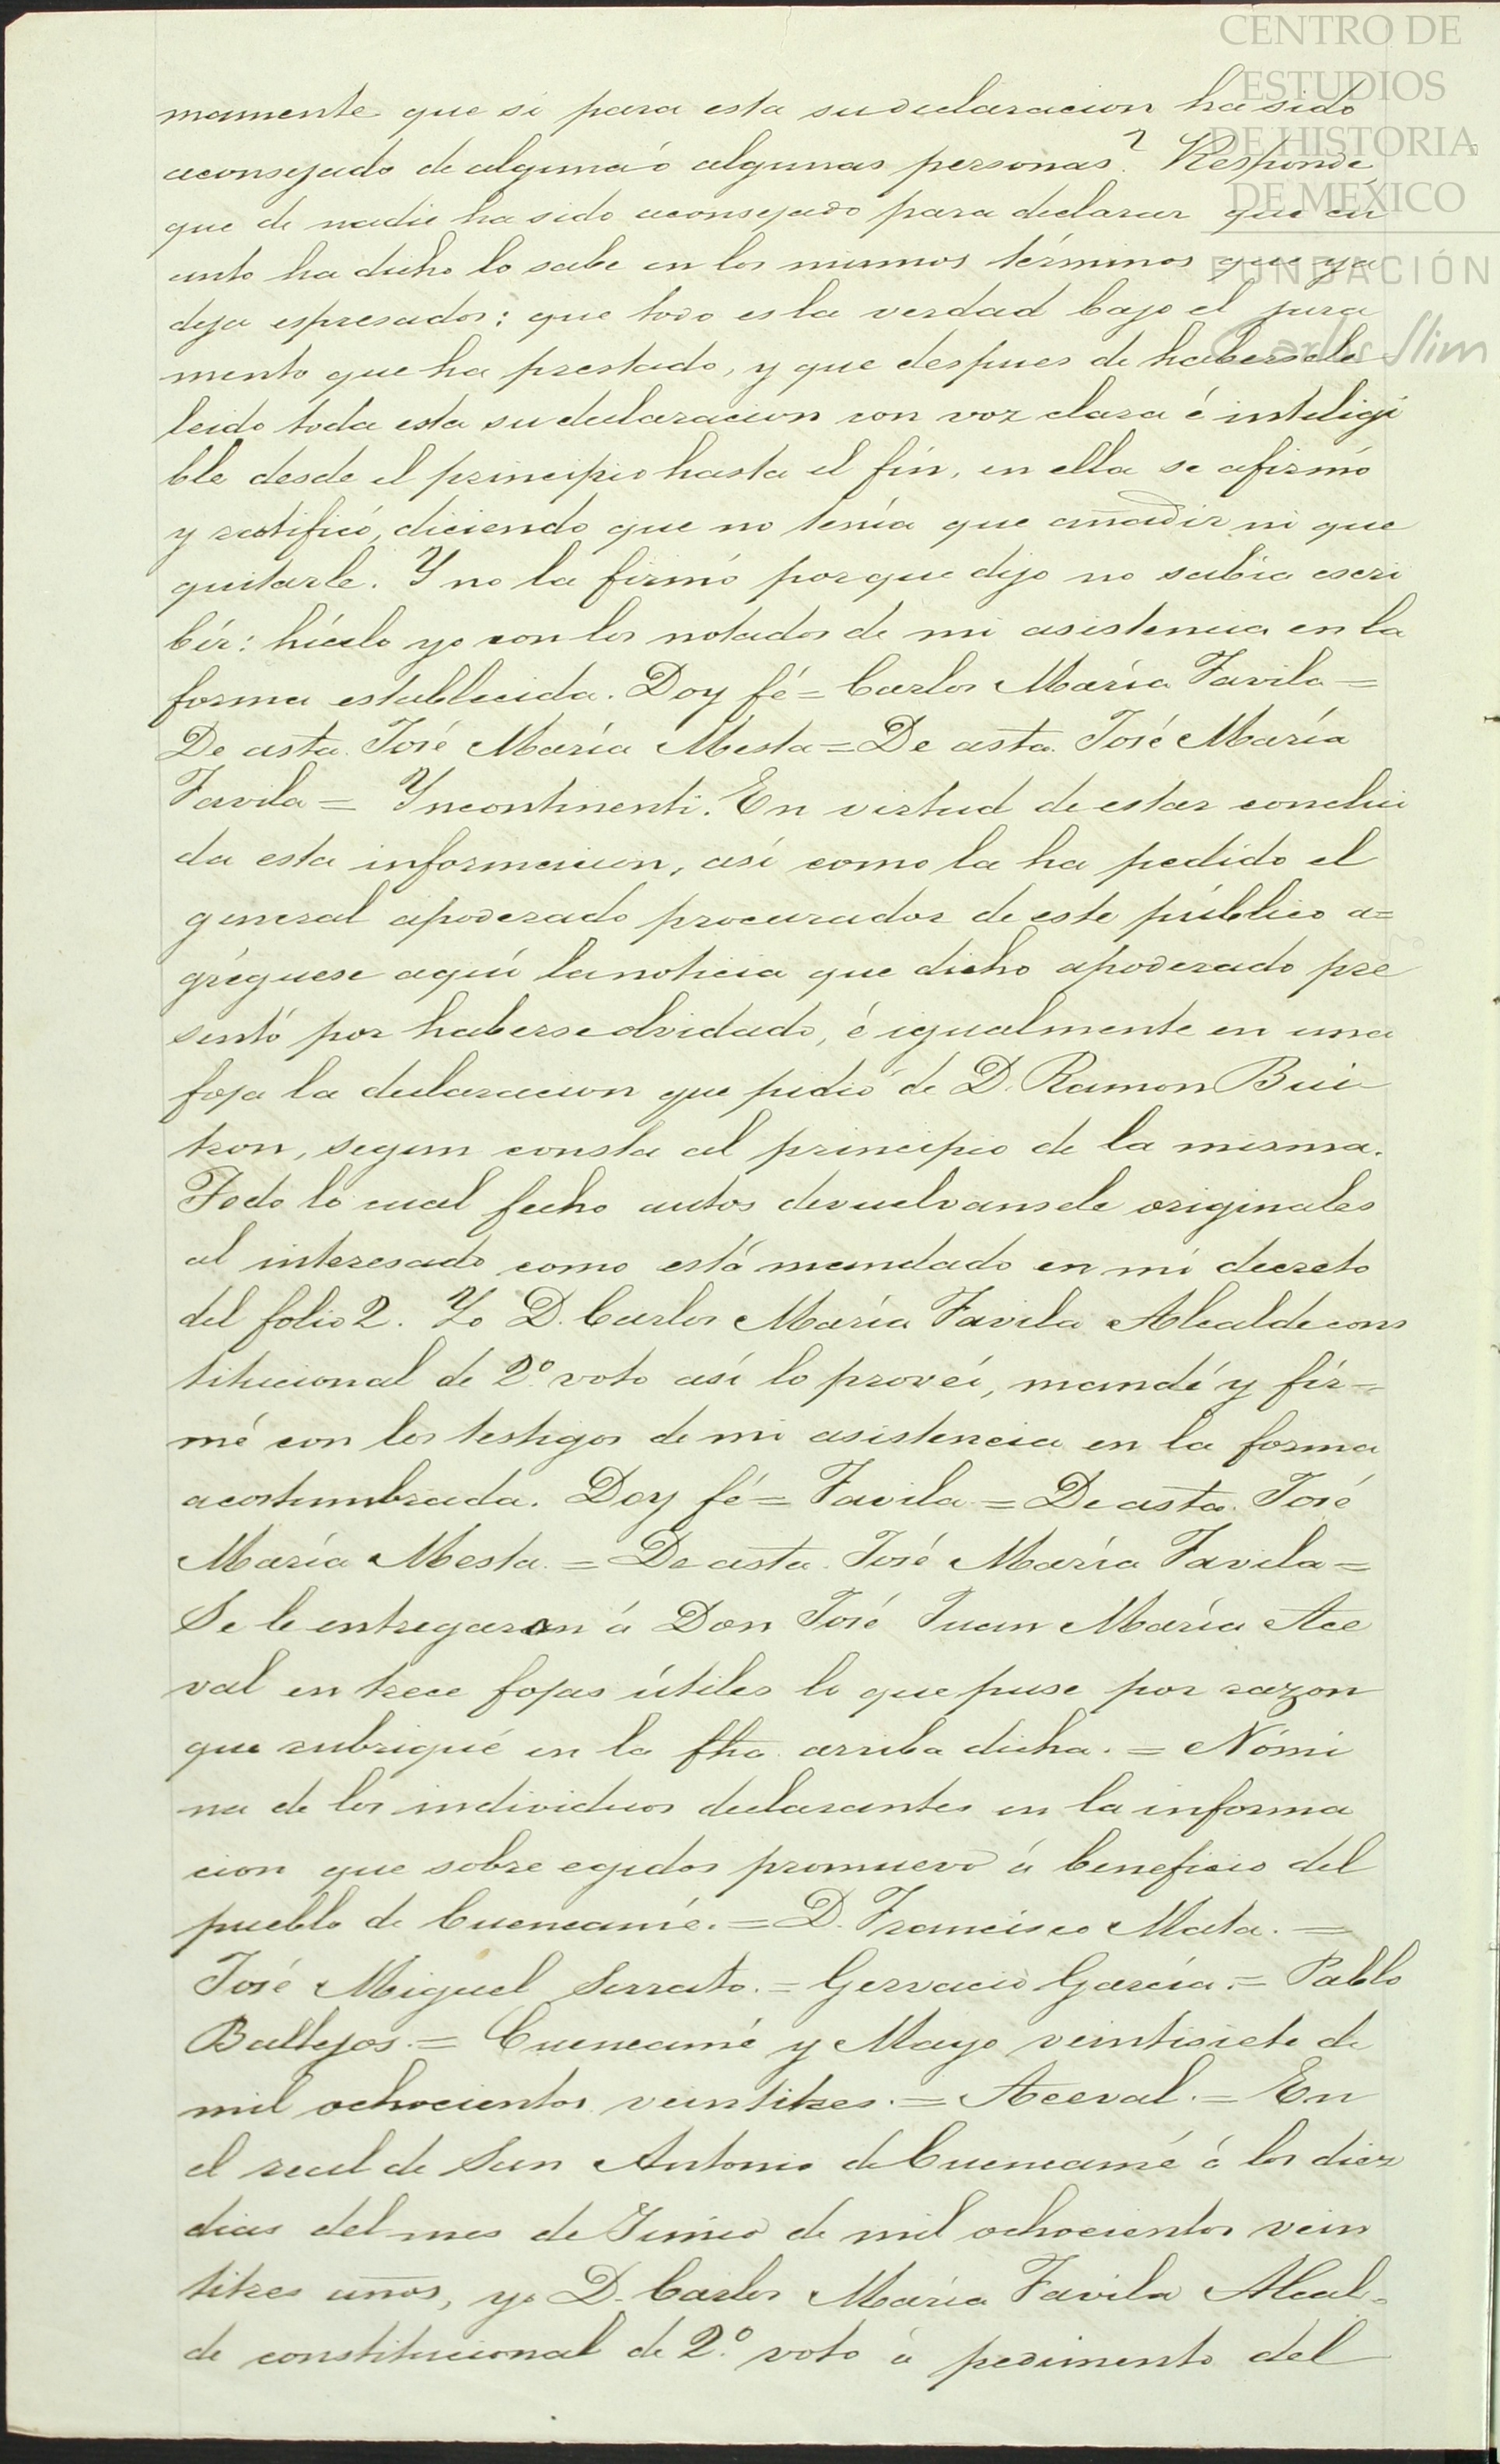 CENTRO DE
ESTUDIOS
DE HISTORIA
DE MEXICO
FUNDACIÓN
Carlos Slim
mamente que si para esta su declaracion ha sido
aconsejado de alguna ó algunas personas? Responde
que de nadie ha sido aconsejado para declarar que cu
anto ha dicho lo sabe en los mismos términos que ya
deja espresados: que todo es la verdad bajo el jura
mento que ha prestado, y que despues de habersele
leido toda esta su declaracion con voz clara é inteligi
ble desde el principio hasta el fín, en ella se afirmó
y ratificó, diciendo que no tenía que añadir ni que
quitarle. Y no la firmó porque dijo no sabía escri
bír: hícelo yo con los notados de mi asistencia en la
forma establecida. Doy fé = Carlos María Favila =
De asta. José María Mesta = De asta. José María
Favila = Yncontinenti. En virtud de estar conclui
da esta informacion, así como la ha pedido el
general apoderado procurador de este público a=
gréguese aquí la noticia que dicho apoderado pre
sentó por haberse olvidado, é igualmente en una
foja la declaracion que pidió de D. Ramon Bui
tron, segun consta al principio de la misma.
Todo lo cual fecho autos devuelvansele originales
al interesado como está mandado en mi decreto
del folio 2. Yo D. Carlos María Favila Alcalde cons
titucional de 2º voto así lo proveí, mandé y fír=
mé con los testigos de mi asistencia en la forma
acostumbrada. Doy fé = Favila = De asta. José
María Mesta. = De asta. José María Favila =
Se le entregaron á Don José Juan María Ace
val en trece fojas útiles lo que puse por razon
que rubriqué en la fha. arriba dicha. = Nómi
na de los individuos declarantes en la informa
cion que sobre egidos promuevo á beneficio del
pueblo de Cuencamé. = D. Francisco Mata. =
José Miguel Serrato. = Gervacio García. = Pablo
Ballejos. = Cuencamé y Mayo veintisiete de
mil ochocientos veintitres. = Aceval. = En
el real de San Antonio de Cuencamé á los diez
dias del mes de Junio de mil ochocientos vein
titres años, yo D. Carlos María Favila Alcal=
de constitucional de 2º voto á pedimento del